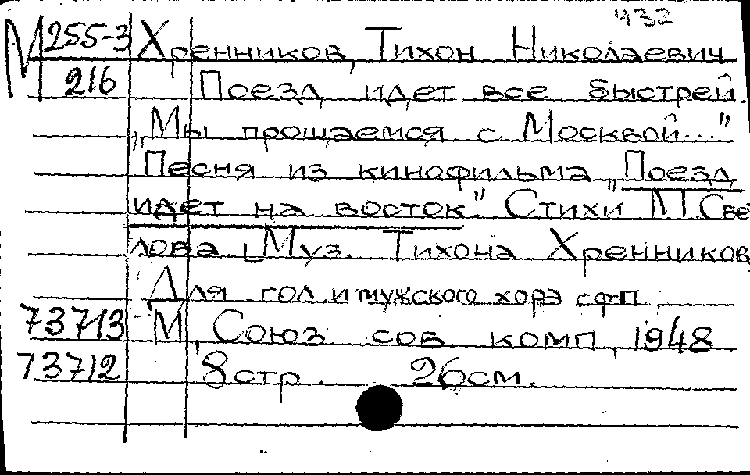 432
М 255-3 Хренников, Тихон Николаевич
216 Поезд идет все быстрей.
"Мы прощаемся с Москвой..."
Песня из кинофильма "Поезд
идет на восток". Стихи М. Све
лова Муз. Тихона Хренников
Для гол. и мужского хора с ф-п
73713 М., Союз сов. комп., 1948
73712 8 стр. 26 см.